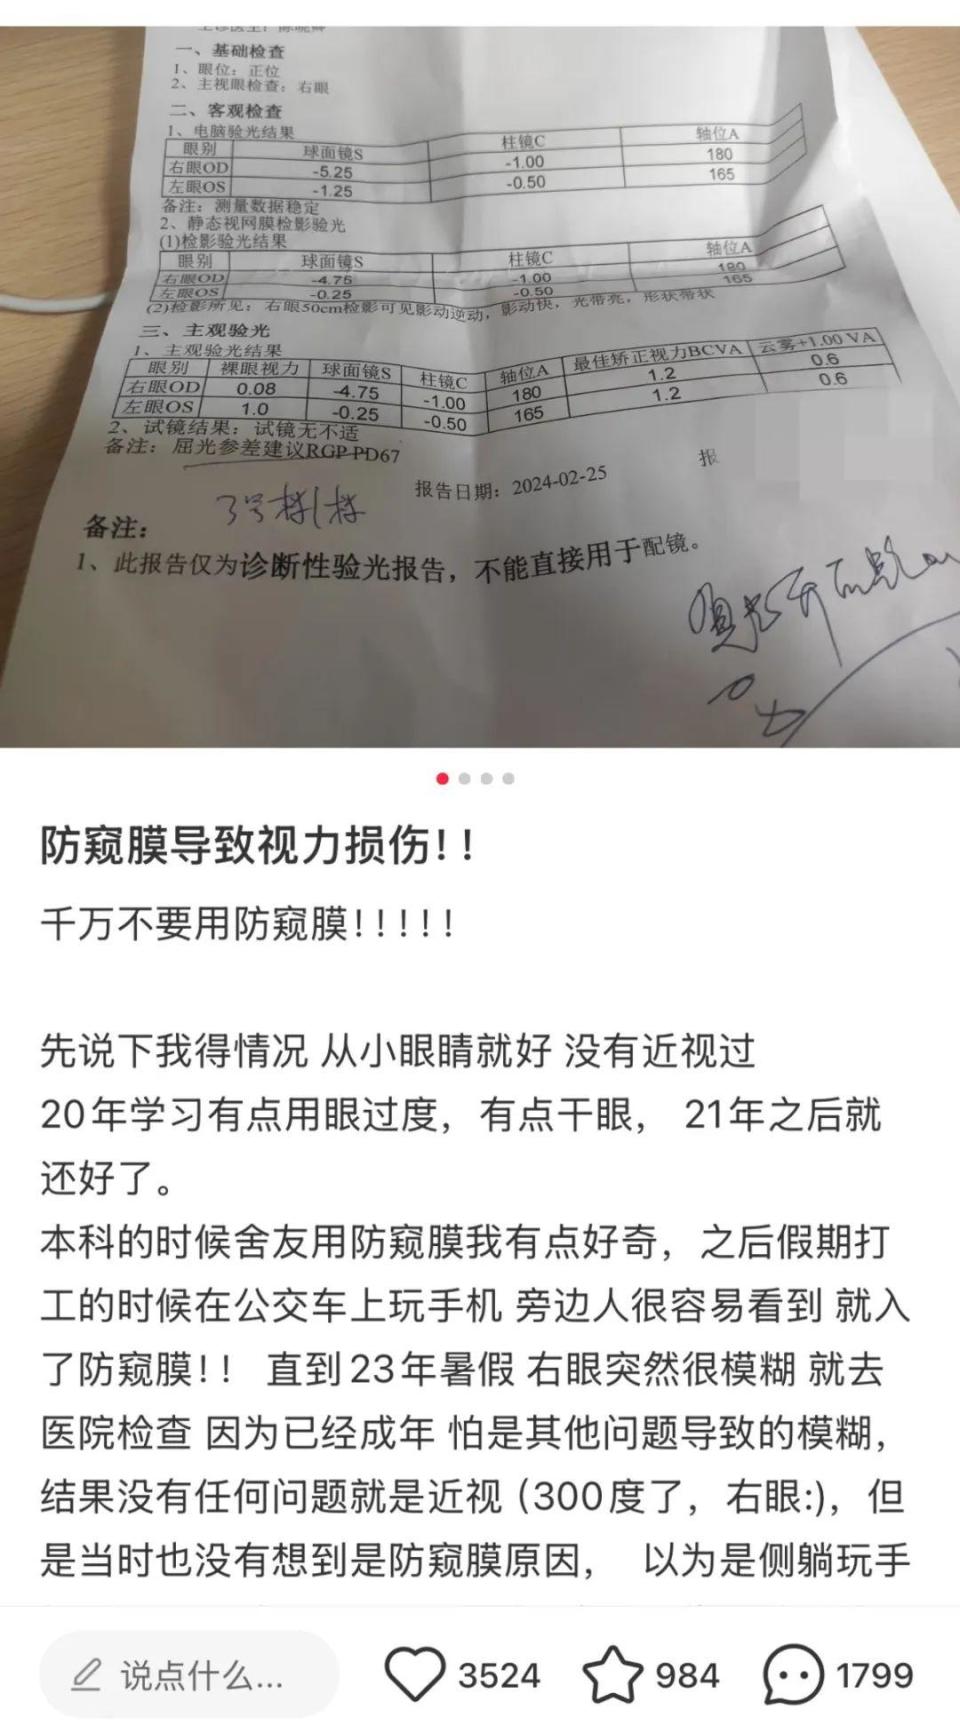 一、基础检查
1、眼位：正位
2、主视眼检查：右眼
二、客观检查
1、电脑验光结果
眼别 球面镜S 柱镜C 轴位A
右眼OD -5.25 -1.00 180
左眼OS -1.25 -0.50 165
备注：测量数据稳定
2、静态视网膜检影验光
(1)检影验光结果
眼别 球面镜S 柱镜C 轴位A
右眼OD -4.75 -1.00 180
左眼OS -0.25 -0.50 165
(2)检影所见：右眼50cm检影可见影动逆动，影动快，光带亮，形状带状
三、主观验光
1、主观验光结果
眼别 裸眼视力 球面镜S 柱镜C 轴位A 最佳矫正视力BCVA 云雾+1.00 VA
右眼OD 0.08 -4.75 -1.00 180 1.2 0.6
左眼OS 1.0 -0.25 -0.50 165 1.2 0.6
2、试镜结果：试镜无不适
备注：屈光参差建议RGP PD67
报告日期：2024-02-25
报
备注：
1、此报告仅为诊断性验光报告，不能直接用于配镜。
防窥膜导致视力损伤！！
千万不要用防窥膜！！！！！
先说下我得情况 从小眼睛就好 没有近视过
20年学习有点用眼过度，有点干眼， 21年之后就
还好了。
本科的时候舍友用防窥膜我有点好奇，之后假期打
工的时候在公交车上玩手机 旁边人很容易看到 就入
了防窥膜！！ 直到23年暑假 右眼突然很模糊 就去
医院检查 因为已经成年 怕是其他问题导致的模糊，
结果没有任何问题就是近视（300度了，右眼:)，但
是当时也没有想到是防窥膜原因， 以为是侧躺玩手
说点什么...
3524
984
1799